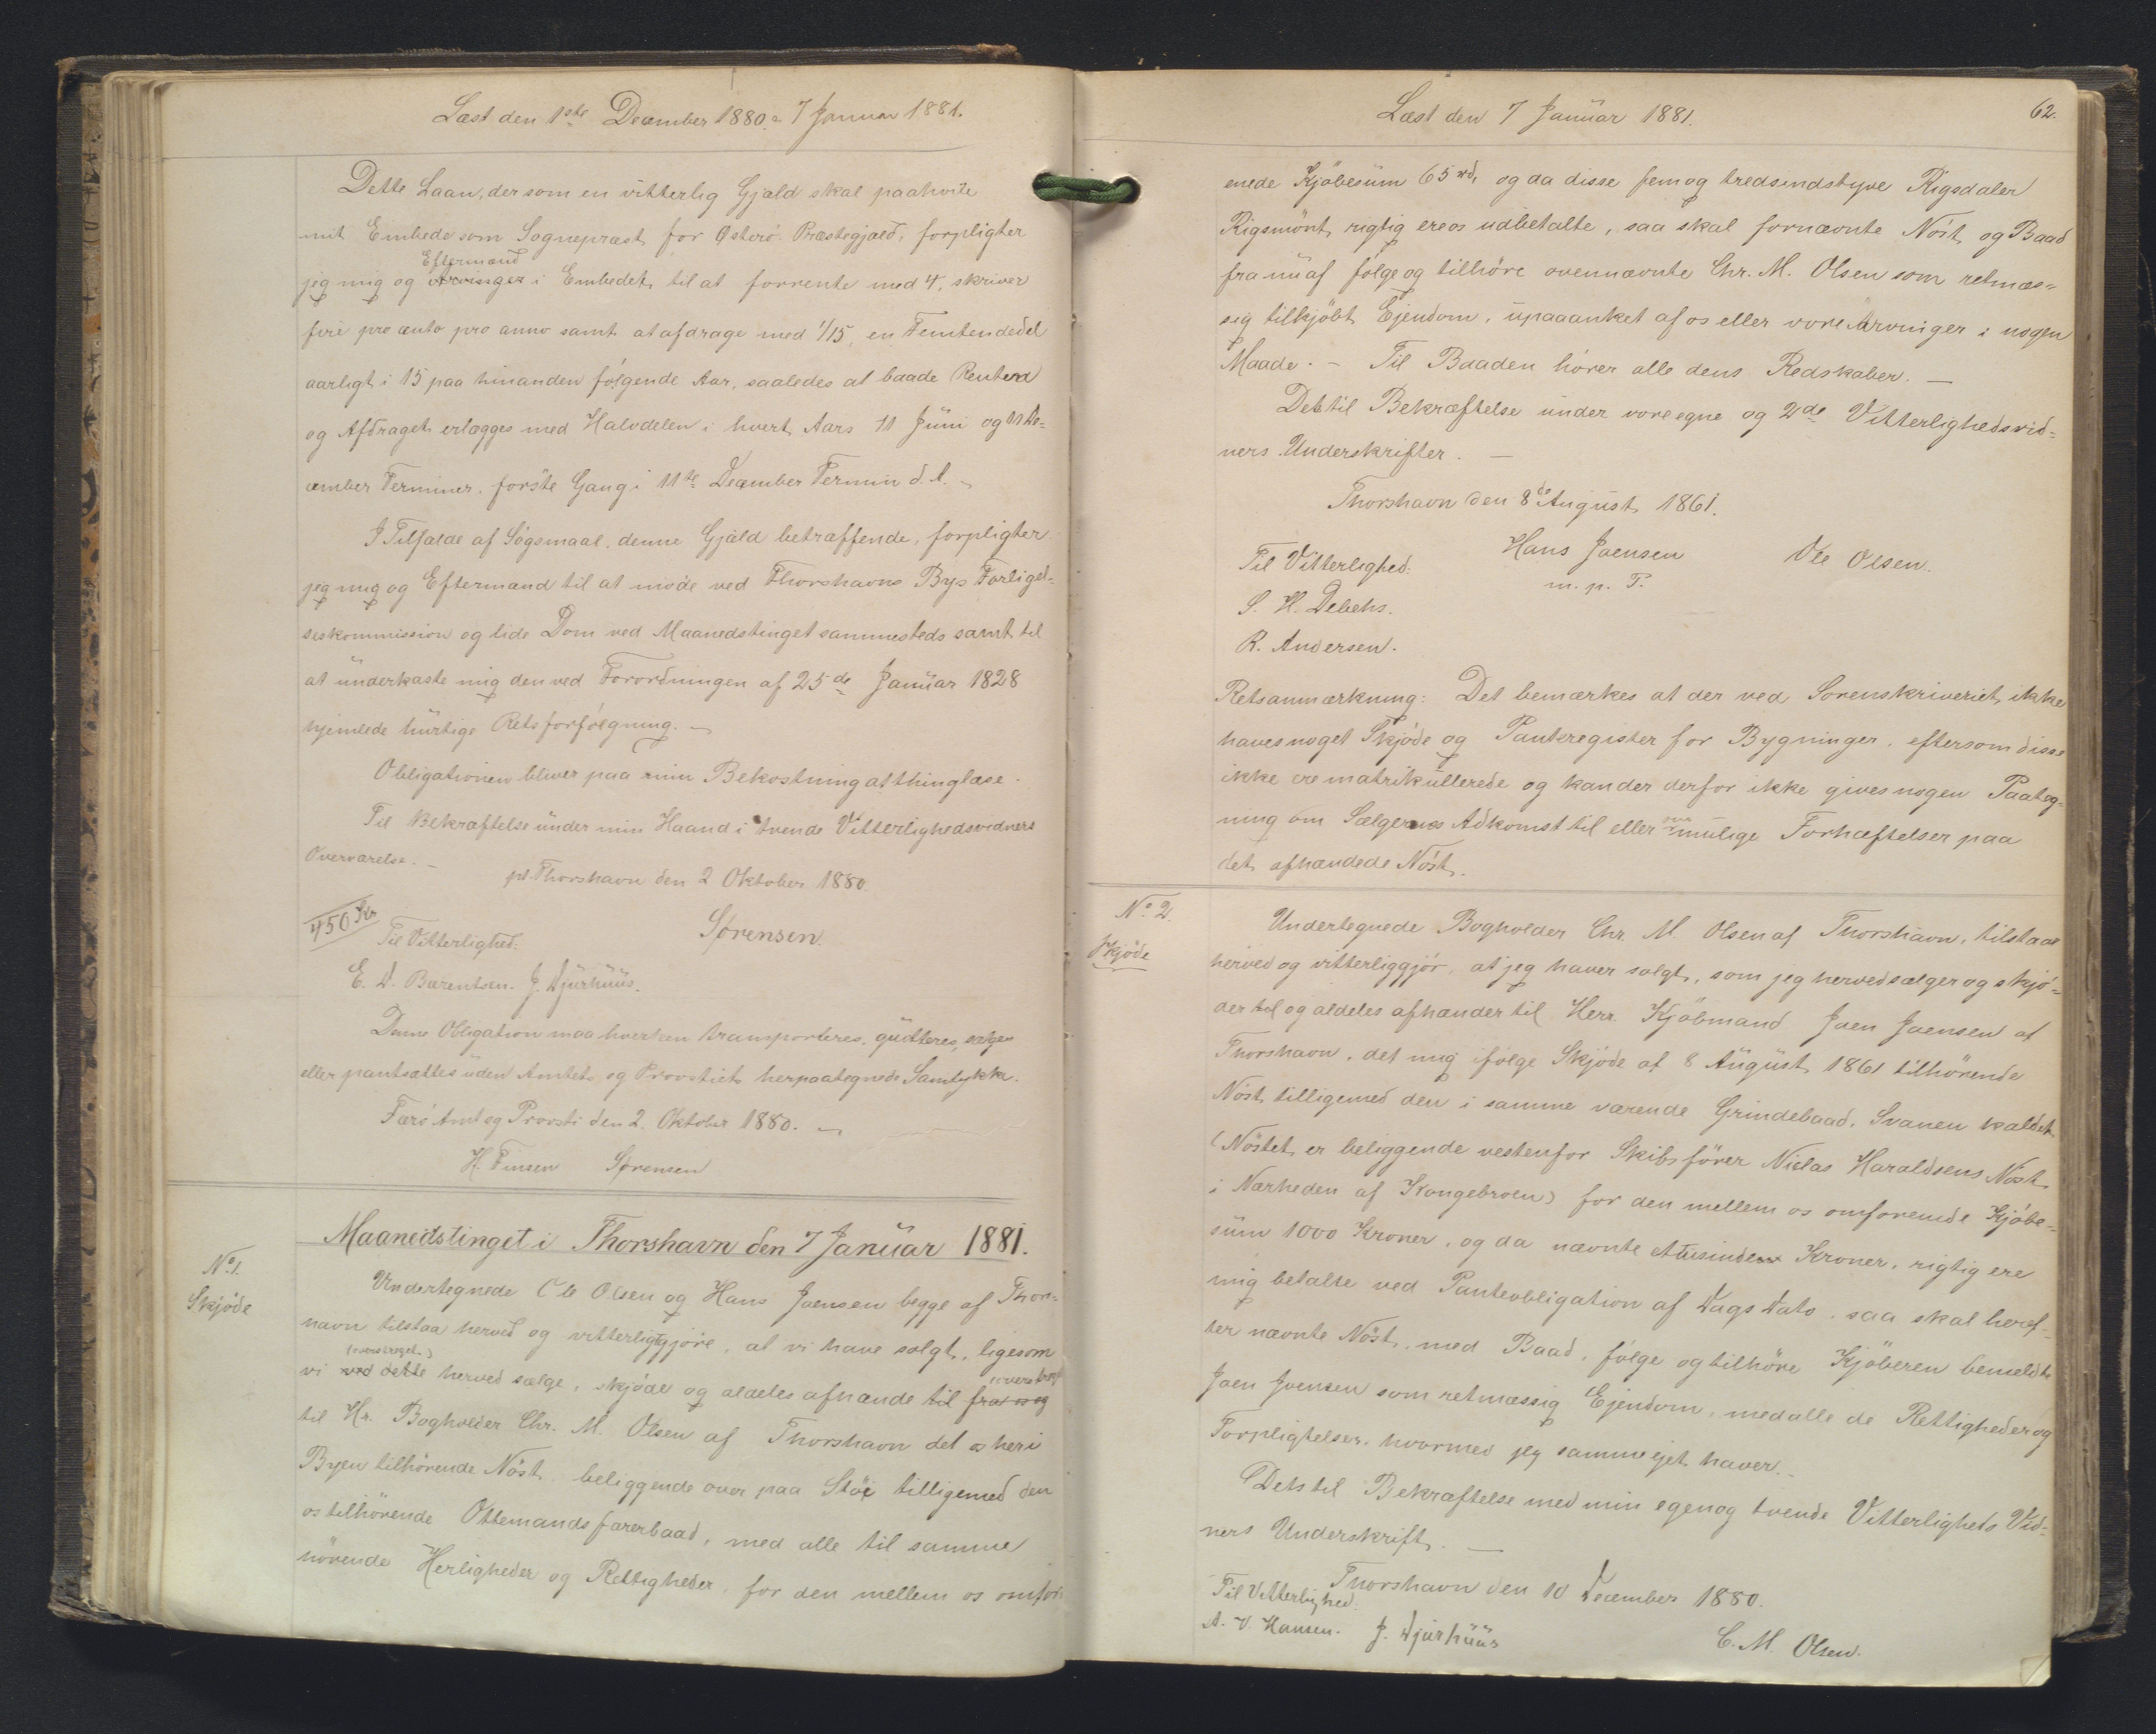 Læst den 1ste December 1880 & 7 Januar 1881.
Dette Laan, der som en vitterlig Gjæld skal paahvile
mit Embede som Sognepræst for Østerö Præstegjæld, forpligter
Eftermænd
jeg mig og Arvinger i Embedet, til at forrente med 4, skriver
fire pro cento pro anno samt at afdrage med 1/15, en Femtendedel
aarligt i 15 paa hinanden følgende Aar, saaledes at baade Renten
og Afdraget erlægges med Halvdelen i hvert Aars 11 Juni og 11 De-
cember Terminer, förste Gang i 11te December Termin d. A. –
I Tilfælde af Sögsmaal, denne Gjæld betræffende, forpligter
jeg mig og Eftermænd til at möde ved Thorshavns Bys Forligel-
seskommission og lide Dom ved Maanedstinget sammesteds samt til
at underkaste mig den ved Forordningen af 25de Januar 1828
hjemlede hurtige Retsforfölgning. –
Obligationen bliver paa min Bekostning at thinglæse.
Til Bekræftelse under min Haand i tvende Vitterlighedsvidners
Overværelse. –
pt. Thorshavn den 2 Oktober 1880.
450 Kr
Til Vitterlighed:
Sørensen.
E. D. Bærentsen. J. Djurhuus.
Denne Obligation maa hverken transporteres, qvitteres, sælges
eller pantsættes uden Amtets og Provstiets herpaategnede Samtykke.
Færö Amt og Provsti den 2. Oktober 1880. –
H. Finsen Sørensen
Maanedstinget i Thorshavn den 7 Januar 1881.
No 1.
Skjöde
Undertegnede Ole Olsen og Hans Joensen begge af Thors-
havn tilstaa herved og vitterliggjöre, at vi have solgt, ligesom
(overstreget) (overstreget
vi ved dette herved sælge, skjöde og aldeles afhænde til fra os og
til Hr. Bogholder Chr. M. Olsen af Thorshavn det os her i
Byen tilhörende Nöst, beliggende over paa Stöi tilligemed den
os tilhörende Ottemandsfarerbaad, med alle til samme
hörende Herligheder og Rettigheder, for den mellem os omfor-
Læst den 7 Januar 1881.
62.
enede Kjöbesum 65 rd, og da disse fem og tredsindstyve Rigsdaler
Rigsmönt, rigtig ere os udbetalte, saa skal fornævnte Nöst og Baad
fra nu af fölge og tilhöre ovennævnte Chr. M. Olsen som retmæs-
sig tilkjöbt Ejendom, upaaanket af os eller vore Arvinger i nogen
Maade. – Til Baaden hörer alle dens Redskaber. –
Dets til Bekræftelse under vore egne og 2de Vitterlighedsvid-
ners Underskrifter. –
Thorshavn den 8de August 1861.
Til Vitterlighed: Hans Joensen Ole Olsen.
m. p. P.
S. H. Debehs.
R. Andersen.
Retsanmærkning: Det bemærkes at der ved Sorenskriveriet ikke
haves noget Skjöde og Panteregister for Bygninger, eftersom disse
ikke ere matrikullerede og kan der derfor ikke gives nogen Paateg-
over
ning om Sælgernes Adkomst til eller mulige Forhæftelser paa
det afhændede Nöst.
No 2.
Skjöde
Undertegnede Bogholder Chr. M. Olsen af Thorshavn, tilstaar
herved og vitterliggjör, at jeg haver solgt, som jeg herved sælger og skjö-
der til og aldeles afhænder til Herr Kjöbmand Joen Joensen af
Thorshavn, det mig ifölge Skjöde af 8 August 1861 tilhörende
Nöst tilligemed den i samme værende Grindebaad, Svanen kaldet
(Nöstet er beliggende vestenfor Skibsförer Niclas Haraldsens Nöst
i Nærheden af Kongebroen) for den mellem os omforenede Kjöbe-
sum 1000 Kroner, og da nævnte Ettusinde Kroner, rigtig ere
mig betalte ved Panteobligation af Dags Dato, saa skal heref-
ter nævnte Nöst, med Baad, fölge og tilhöre Kjöberen bemeldte
Joen Joensen som retmæssig Ejendom, med alle de Rettigheder og
Forpligtelser, hvormed jeg samme ejet haver. –
Dets til Bekræftelse med min egen og tvende Vitterligheds Vid-
ners Underskrift. –
Thorshavn den 10 December 1880.
Til Vitterlighed.
A. V. Hansen. J. Djurhuus
C. M. Olsen.